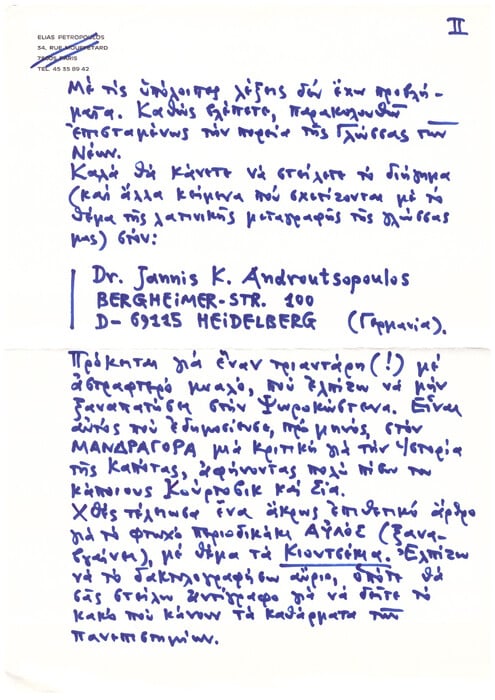 II
ELIAS PETROPOULOS
34, RUE MOUFFETARD
75005 PARIS
TEL. 45 35 89 42
Μὲ τὶς ὑπόλοιπες λέξεις δὲν ἔχω προβλή-
ματα. Καθὼς βλέπετε, παρακολουθῶ
ἐπισταμένως τὴν πορεία τῆς Γλώσσας τῶν
Νέων.
Καλὰ θὰ κάνετε νὰ στείλετε τὸ διήγημα
(καὶ ἄλλα κείμενα ποὺ σχετίζονται μὲ τὸ
θέμα τῆς λατινικῆς μεταγραφῆς τῆς γλώσσας
μας) στόν:
Dr. Jannis K. Androutsopoulos
BERGHEIMER-STR. 100
D- 69115 HEIDELBERG (Γερμανία).
Πρόκηται γιὰ ἕναν τριαντάρη (!) μὲ
ἀστραφτερὸ μυαλό, ποὺ ἐλπίζω νὰ μὴν
ξαναπατήσει στὴν Ψωροκώσταινα. Εἶναι
αὐτὸς ποὺ ἐδημοσίευσε, πρὸ μηνός, στὸν
ΜΑΝΔΡΑΓΟΡΑ μιὰ κριτικὴ γιὰ τὴν Ἱστορία
τῆς Καπότας, ἀφήνοντας πολὺ πίσω του
κάποιους Κούρτοβικ καὶ Σία.
Χθὲς τέλειωσα ἕνα ἄκρως ἐπιθετικὸ ἄρθρο
γιὰ τὸ φτωχὸ περιοδικάκι ΑΫΛΟΣ (ξανα-
βγαίνει), μὲ θέμα τὰ Κιοντσέκια. Ἐλπίζω
νὰ τὸ δακτυλογραφήσω αὔριο, ὁπότε θὰ
σᾶς στείλω ἀντίγραφο γιὰ νὰ δεῖτε τὸ
κακὸ ποὺ κάνουν τὰ καθάρματα τῶν
Πανεπιστημίων.